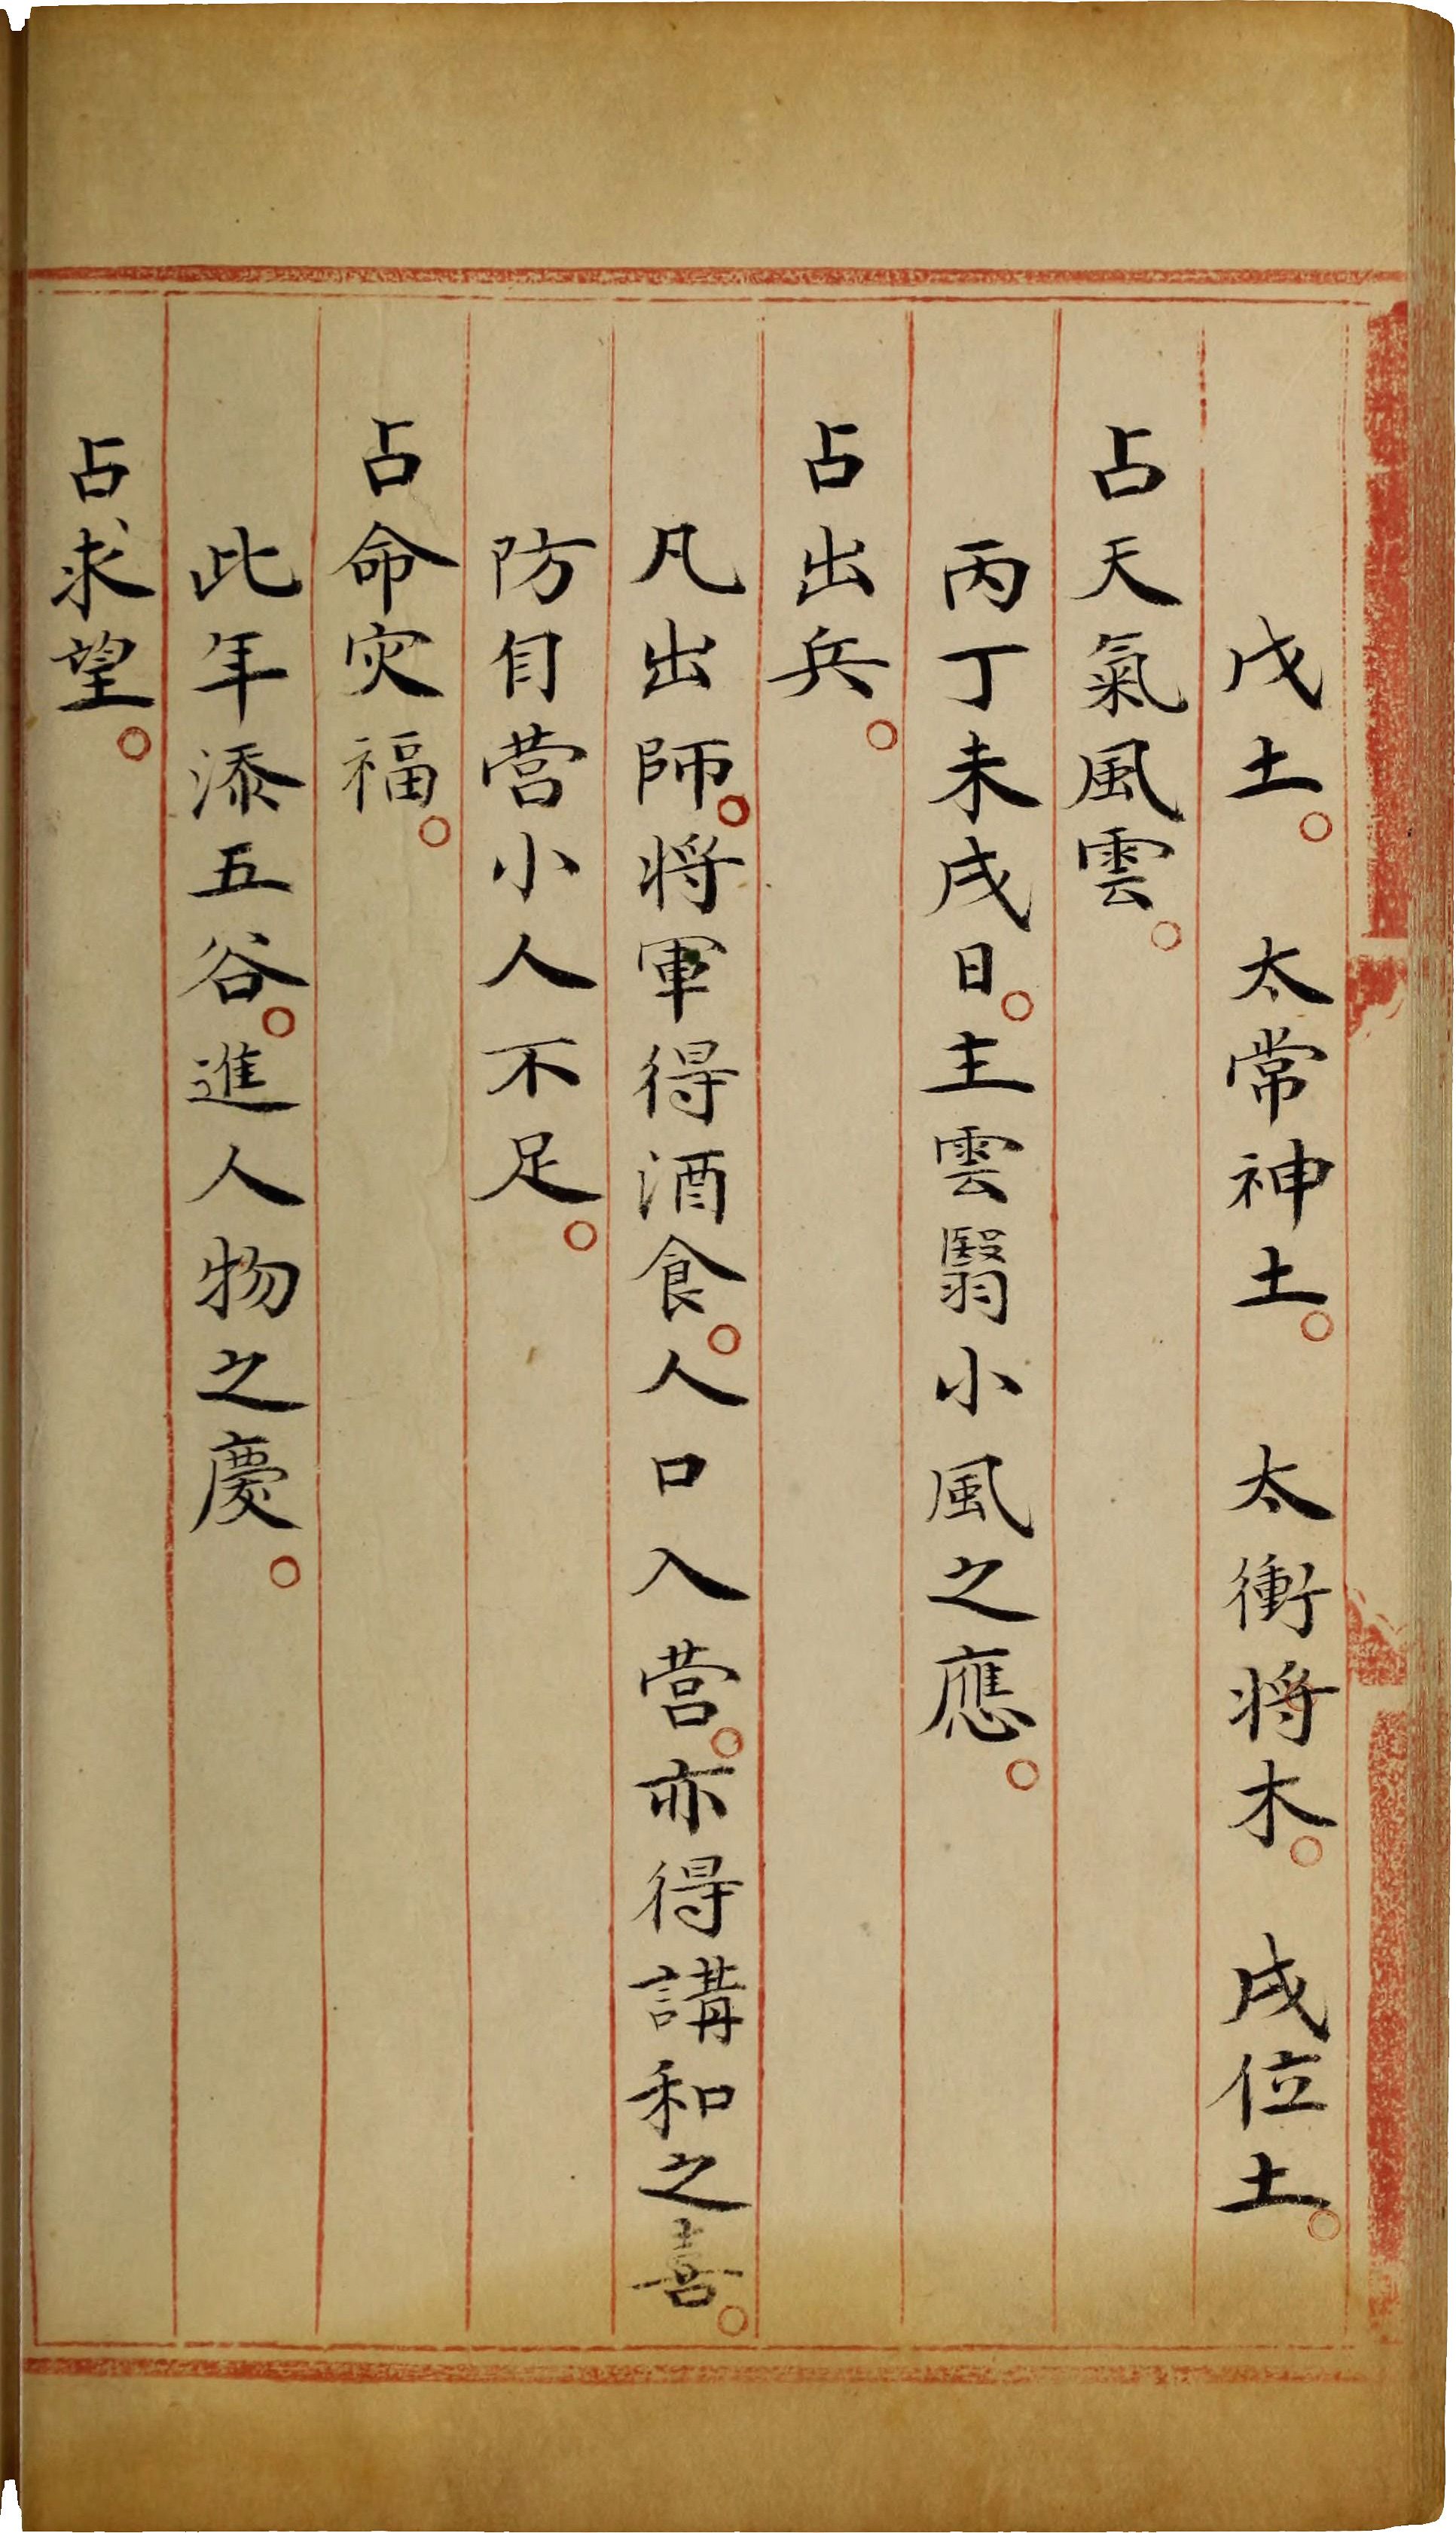 戊土。　太常神土。　太衝將木。　戌位土。
占天氣風雲。
丙丁未戌日。主雲翳小風之應。
占出兵。
凡出師。將軍得酒食。人口入营。亦得講和之喜。
防自营小人不足。
占命灾福。
此年添五谷。進人物之慶。
占求望。